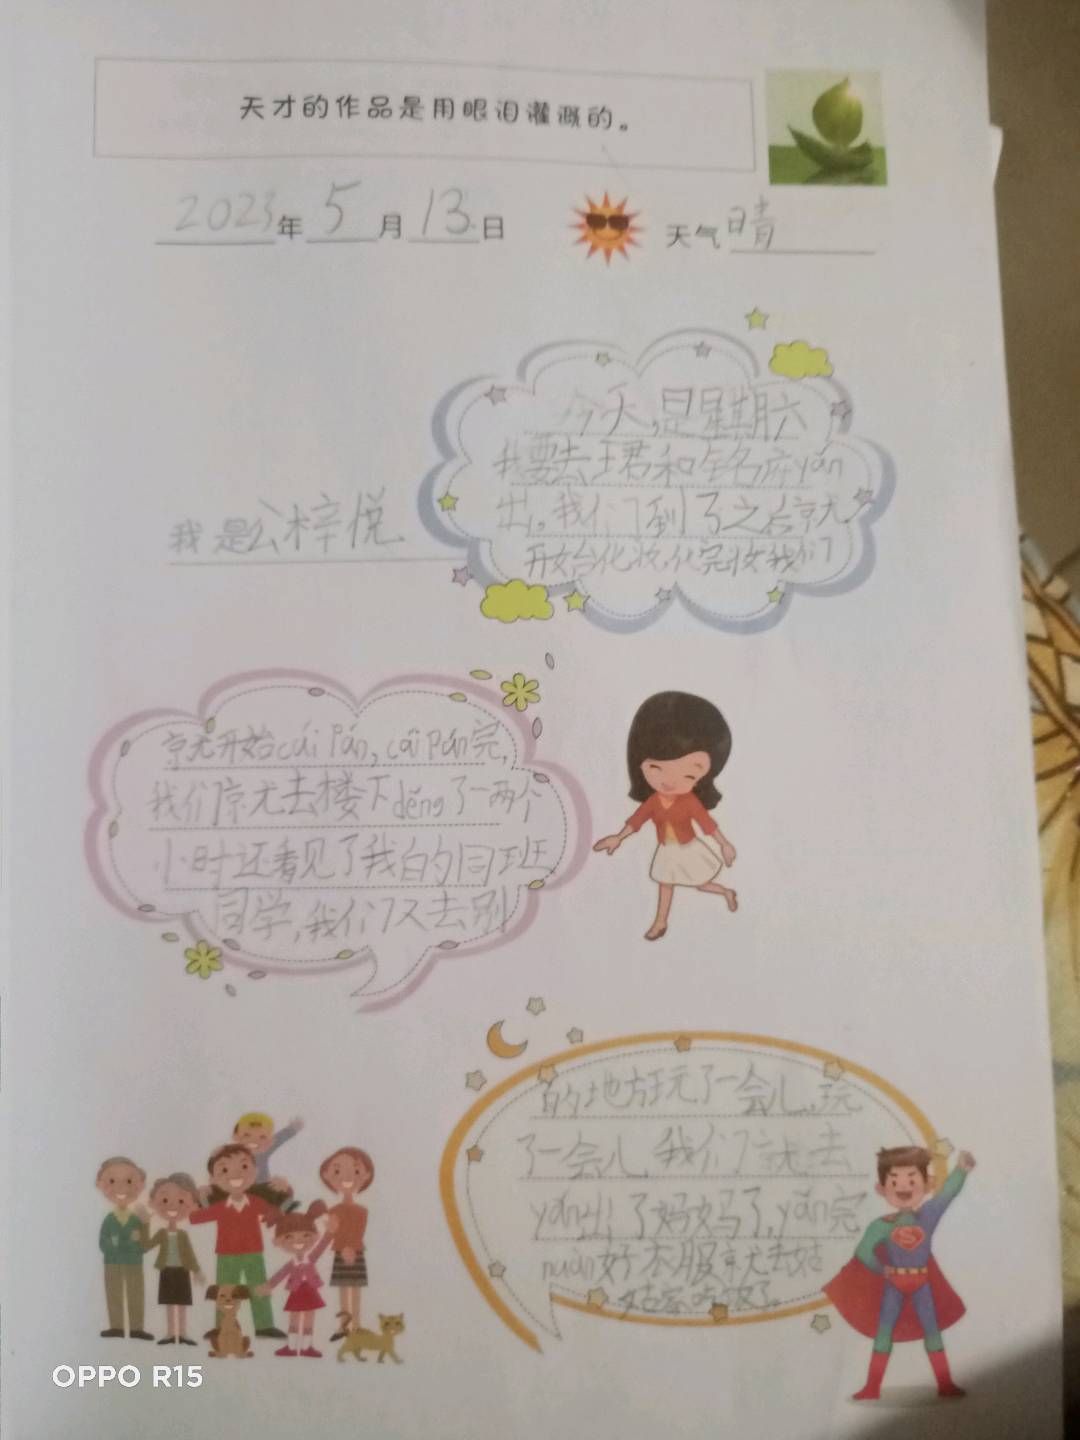 天才的作品是用眼泪灌溉的。
2023年5月13日 天气晴
今天,是星期六
我要去珺和铭府yǎn
出。我们到了之后就
开始化妆,化完妆我们
我是公梓悦
就开始cǎi Pán,cǎi Pán完,
我们就去楼下děng了一两个
小时还看见了我的同班
同学,我们又去别
的地方玩了一会儿,玩
了一会儿我们就去
yǎn出了妈妈了,yǎn完
huàn好衣服就去姑
姑家吃饭了。
S
OPPO R15